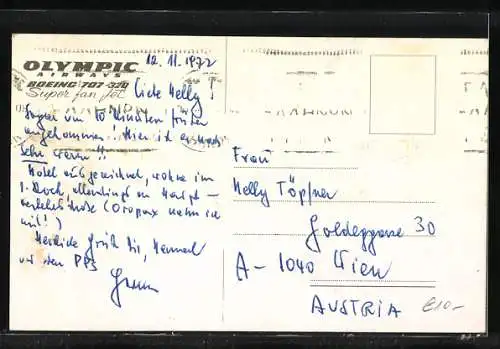 12. 11. 1972
OLYMPIC
AIRWAYS
BOEING 707-320
Super fan Jet
Liebe Melly!
Sogar um 10 Minuten früher
angekommen! Hier ist es noch
sehr warm!!
Hotel ausgezeichnet, wohne im
1. Stock, allerdings an Haupt-
verkehrsstraße (Oropax nehm ich
mit!)
Herzliche Grüße Dir,
und den
Frau
Melly Töpfner
Goldeggasse 30
A-1040 Wien
AUSTRIA
€10-